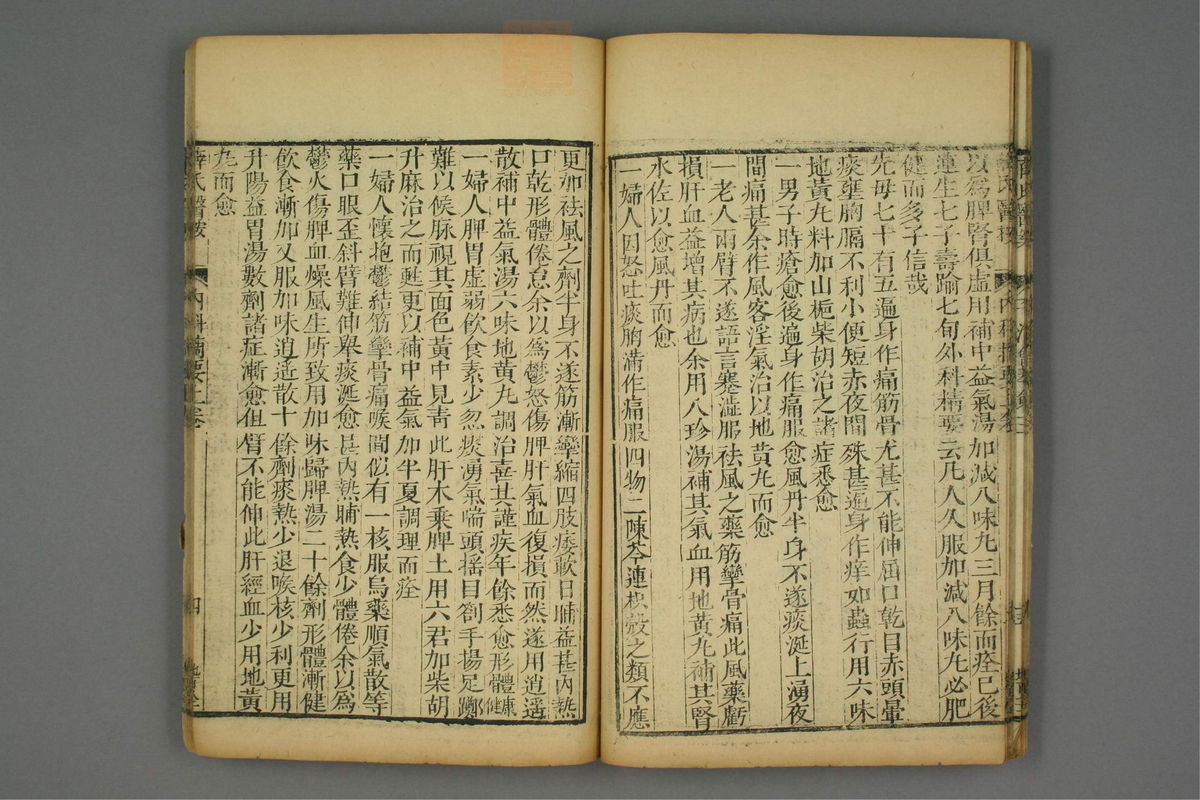 以爲脾腎俱虛用補中益氣湯加減八味丸三月餘而痊已後
連生七子壽踰七旬外科精要云凡人久服加減八味丸必肥
健而多子信哉
先母七十有五遍身作痛筋骨尤甚不能伸屈口乾目赤頭暈
痰壅胸膈不利小便短赤夜間殊甚遍身作痒如蟲行用六味
地黃丸料加山梔柴胡治之諸症悉愈
一男子時瘡愈後遍身作痛服愈風丹半身不遂痰涎上湧夜
間痛甚余作風客淫氣治以地黃丸而愈
一老人兩臂不遂語言蹇澁服祛風之藥筋攣骨痛此風藥虧
損肝血益增其病也余用八珍湯補其氣血用地黃丸補其腎
水佐以愈風丹而愈
一婦人因怒吐痰胸滿作痛服四物二陳芩連枳殼之類不應
更加祛風之劑半身不遂筋漸攣縮四肢痿軟日晡益甚內熱
口乾形體倦怠余以爲鬱怒傷脾肝氣血復損而然遂用逍遥
散補中益氣湯六味地黃丸調治喜其謹疾年餘悉愈形體康健
一婦人脾胃虛弱飲食素少忽痰湧氣喘頭搖目劄手揚足擲
難以候脉視其面色黃中見靑此肝木乗脾土用六君加柴胡
升麻治之而甦更以補中益氣加半夏調理而痊
一婦人懷抱鬱結筋攣骨痛喉間似有一核服烏藥順氣散等
藥口眼歪斜臂難伸舉痰涎愈甚內熱晡熱食少體倦余以爲
鬱火傷脾血燥風生所致用加味歸脾湯二十餘劑形體漸健
飲食漸加又服加味逍遥散十餘劑痰熱少退喉核少利更用
升陽益胃湯數劑諸症漸愈但臂不能伸此肝經血少用地黃
丸而愈
薛氏醫按
內科摘要上卷
四